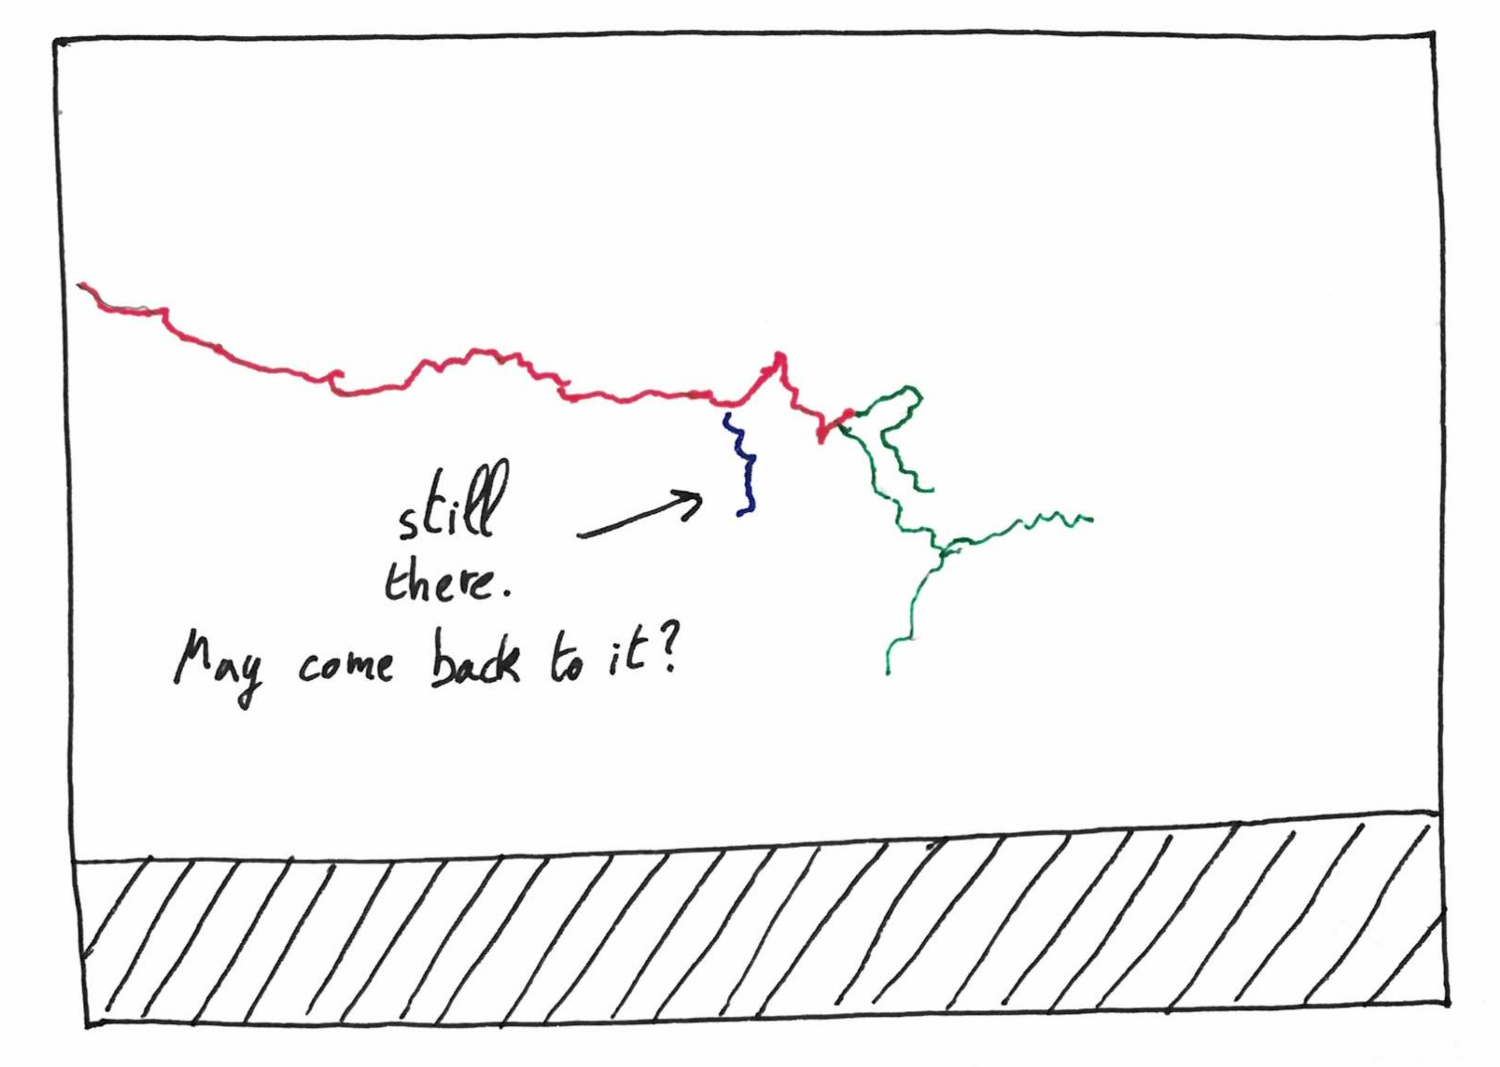 still
there.
May come back to it?